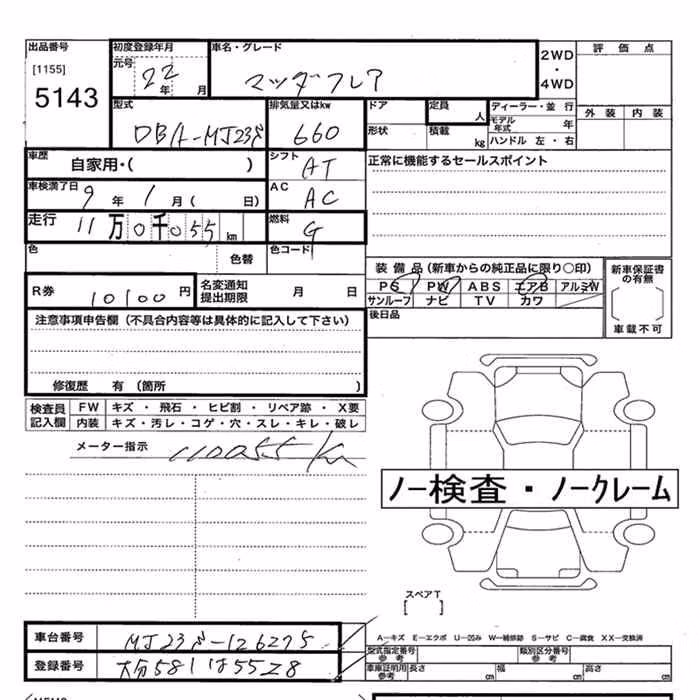 出品番号
[1155]
5143
初度登録年月
元号 22 年 月
車名・グレード
マツダフレア
2WD
・
4WD
評価点
外装 内装
型式
DBA-MJ23S
排気量又はkw
660
ドア
形状
定員 人
積載 kg
ディーラー・並 行
モデル年式 年
ハンドル 左・右
車歴
自家用・( )
シフト
AT
正常に機能するセールスポイント
車検満了日
9 年 1 月( 日)
AC
AC
走行
11万0千055km
燃料
G
色
色替
色コード
装備品(新車からの純正品に限り○印)
PS PW ABS エアB アルミW
サンルーフ ナビ TV カワ
新車保証書の有無
車載不可
R券
10100円
名変通知提出期限 月 日
後日品
注意事項申告欄(不具合内容等は具体的に記入して下さい)
修復歴 有(箇所 )
検査員記入欄
FW キズ・飛石・ヒビ割・リペア跡・X要
内装 キズ・汚レ・コゲ・穴・スレ・キレ・破レ
メーター指示
110055 Km
ノー検査・ノークレーム
スペアT
[ ]
車台番号
MJ23S-126275
登録番号
大分581は5528
A―キズ E―エクボ U―凹み W―補修跡 S―サビ C―腐食 XX―交換済
型式指定番号
参考
類別区分番号
参考
車庫証明用
参考
長さ cm 幅 cm 高さ cm
MEMO